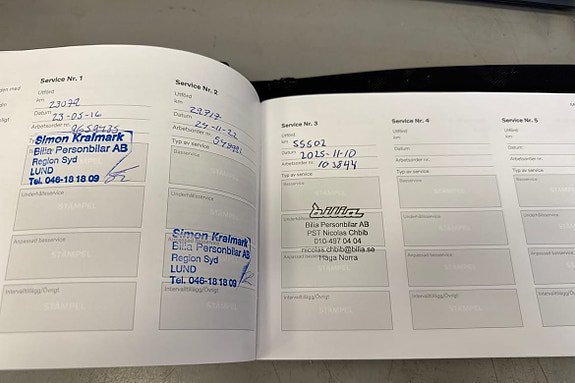 Service Nr. 1
Utförd
km 23072
Datum 23-05-16
Arbetsorder nr.
Simon Kralmark
Bilia Personbilar AB
Region Syd
LUND
Tel. 046-18 18 09
STÄMPEL
Underhållsservice
STÄMPEL
Anpassad basservice
STÄMPEL
Intervalltillägg/Övrigt
STÄMPEL
Service Nr. 2
Utförd
km 29717
Datum 24-11-22
Arbetsorder nr.
Typ av service
Basservice
STÄMPEL
Underhållsservice
Simon Kralmark
Bilia Personbilar AB
Region Syd
LUND
Tel. 046-18 18 09
Intervalltillägg/Övrigt
STÄMPEL
Service Nr. 3
Utförd
km 55502
Datum 2025-11-10
Arbetsorder nr. 103844
Typ av service
Basservice
bilia
Bilia Personbilar AB
PST Nicolas Chbib
010-497 04 04
nicolas.chbib@bilia.se
Haga Norra
Anpassad basservice
STÄMPEL
Intervalltillägg/Övrigt
STÄMPEL
Service Nr. 4
Utförd
km
Datum
Arbetsorder nr.
Typ av service
Basservice
STÄMPEL
Underhållsservice
STÄMPEL
Anpassad basservice
STÄMPEL
Intervalltillägg/Övrigt
STÄMPEL
Service Nr. 5
Utförd
km
Datum
Arbetsorder nr.
Typ av service
Basservice
STÄMPEL
Underhållsservice
STÄMPEL
Anpassad basservice
STÄMPEL
Intervalltillägg/Övrigt
STÄMPEL